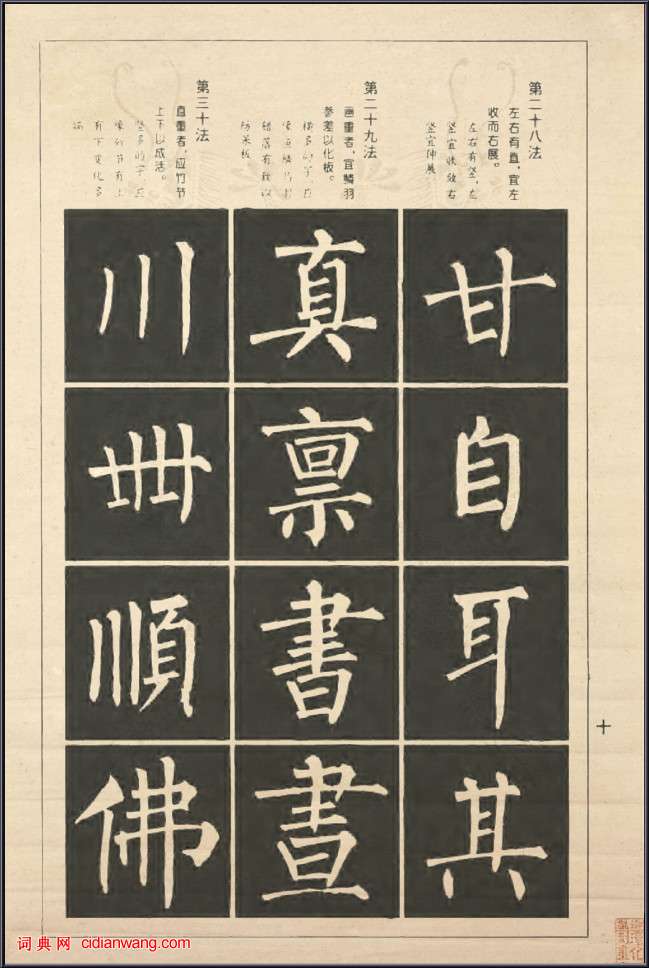 第二十八法
左右有直，宜左
收而右展。
左右有竖，左
竖宜收敛右
竖宜伸展
甘
自
耳
其
第二十九法
画重者，宜鳞羽
参差以化板。
横多的字，应
错落有致以
防呆板
真
禀
書
晝
第三十法
直重者，应竹节
上下以成活。
竖多的字，应
像竹节有上
有下变化多
端
川
卌
順
佛
十
词典网 cidianwang.com